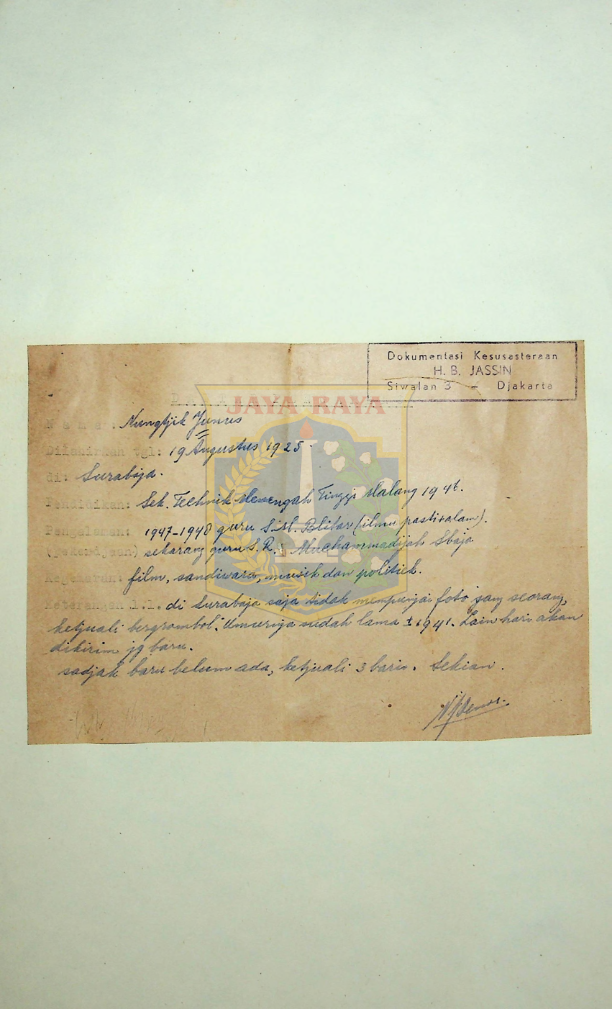 Dokumentasi Kesusasteraan
H. B. JASSIN
Siwalan 3 – Djakarta
JAYA RAYA
Nama: Nungtjik Junus
Dilahirkan tgl: 19 Augustus 1925
di: Surabaja.
Pendidikan: Sek. Technik Menengah Tinggi Malang 1946.
Pengalaman: 1947-1948 guru S.M. Blitar (ilmu pasti/alam).
(pekerdjaan) sekarang guru S.R. Muahammadijah Sbaja
Kegemaran: film, sandiwara, musik dan politiek.
Keterangan l.l. di Surabaja saja tidak mempunjai foto jang seorang,
ketjuali bergrombol. Umurnja sudah lama ± 1941. Lain hari akan
dikirim jg baru.
sadjak baru belum ada, ketjuali 3 baris. Sekian.